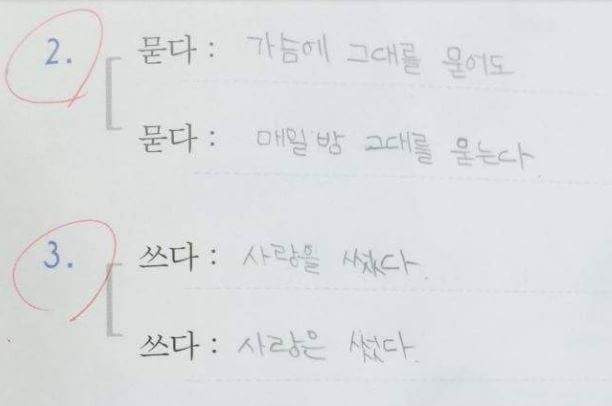 2. 묻다 : 가슴에 그대를 묻어도
묻다 : 매일 밤 그대를 묻는다
3. 쓰다 : 사랑을 썼다.
쓰다 : 사랑은 썼다.